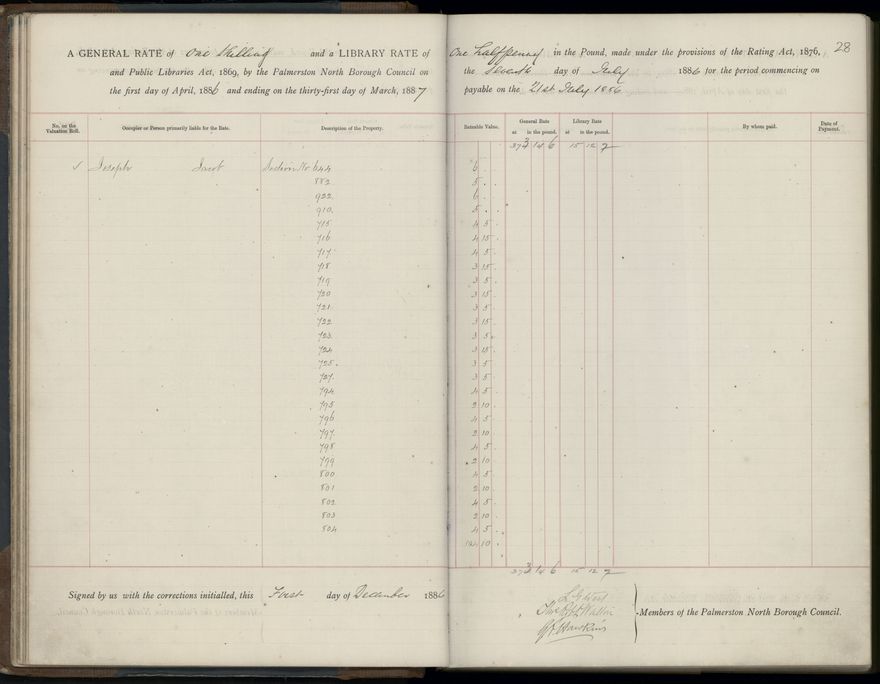 A GENERAL RATE of One Shilling and a LIBRARY RATE of One halfpenny in the Pound, made under the provisions of the Rating Act, 1876, 28
and Public Libraries Act, 1869, by the Palmerston North Borough Council on the Seventh day of July 1886 for the period commencing on
the first day of April, 1886 and ending on the thirty-first day of March, 1887 payable on the 21st July 1886
No. on the Valuation Roll. Occupier or Person primarily liable for the Rate. Description of the Property. Rateable Value. General Rate at in the pound. Library Rate at in the pound. By whom paid. Date of Payment.
373 14 6 15 12 7
Joseph Jacob Section No 644 6
882 5
922 6
910 5
715 4 5
716 4 15
717 4 5
718 3 15
719 3 5
720 3 15
721 3 5
722 3 15
723 3 5
724 3 15
725 3 5
727 3 5
794 4 5
795 2 10
796 4 5
797 2 10
798 4 5
799 2 10
800 4 5
801 2 10
802 4 5
803 2 10
804 4 5
10
373 14 6 15 12 7
Signed by us with the corrections initialled, this First day of December 1886
Members of the Palmerston North Borough Council.